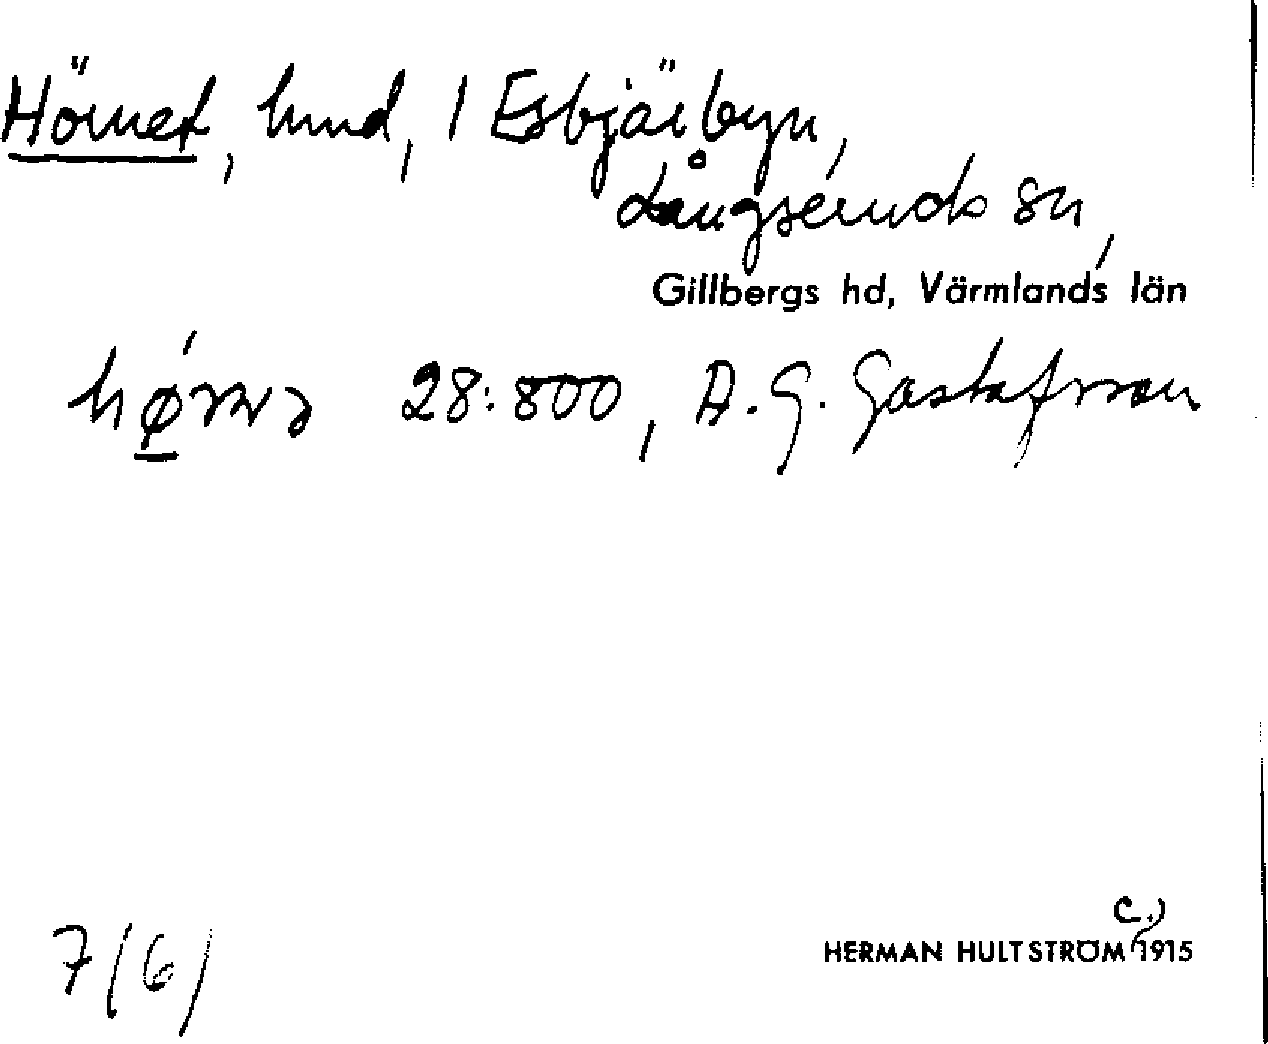 Hörnet, hmd, 1 Esbjörbyn,
Långseruds sn,
Gillbergs hd, Värmlands län
28:800, A. G. Gustafsson
c.)
HERMAN HULTSTRÖM 1915
7/6/